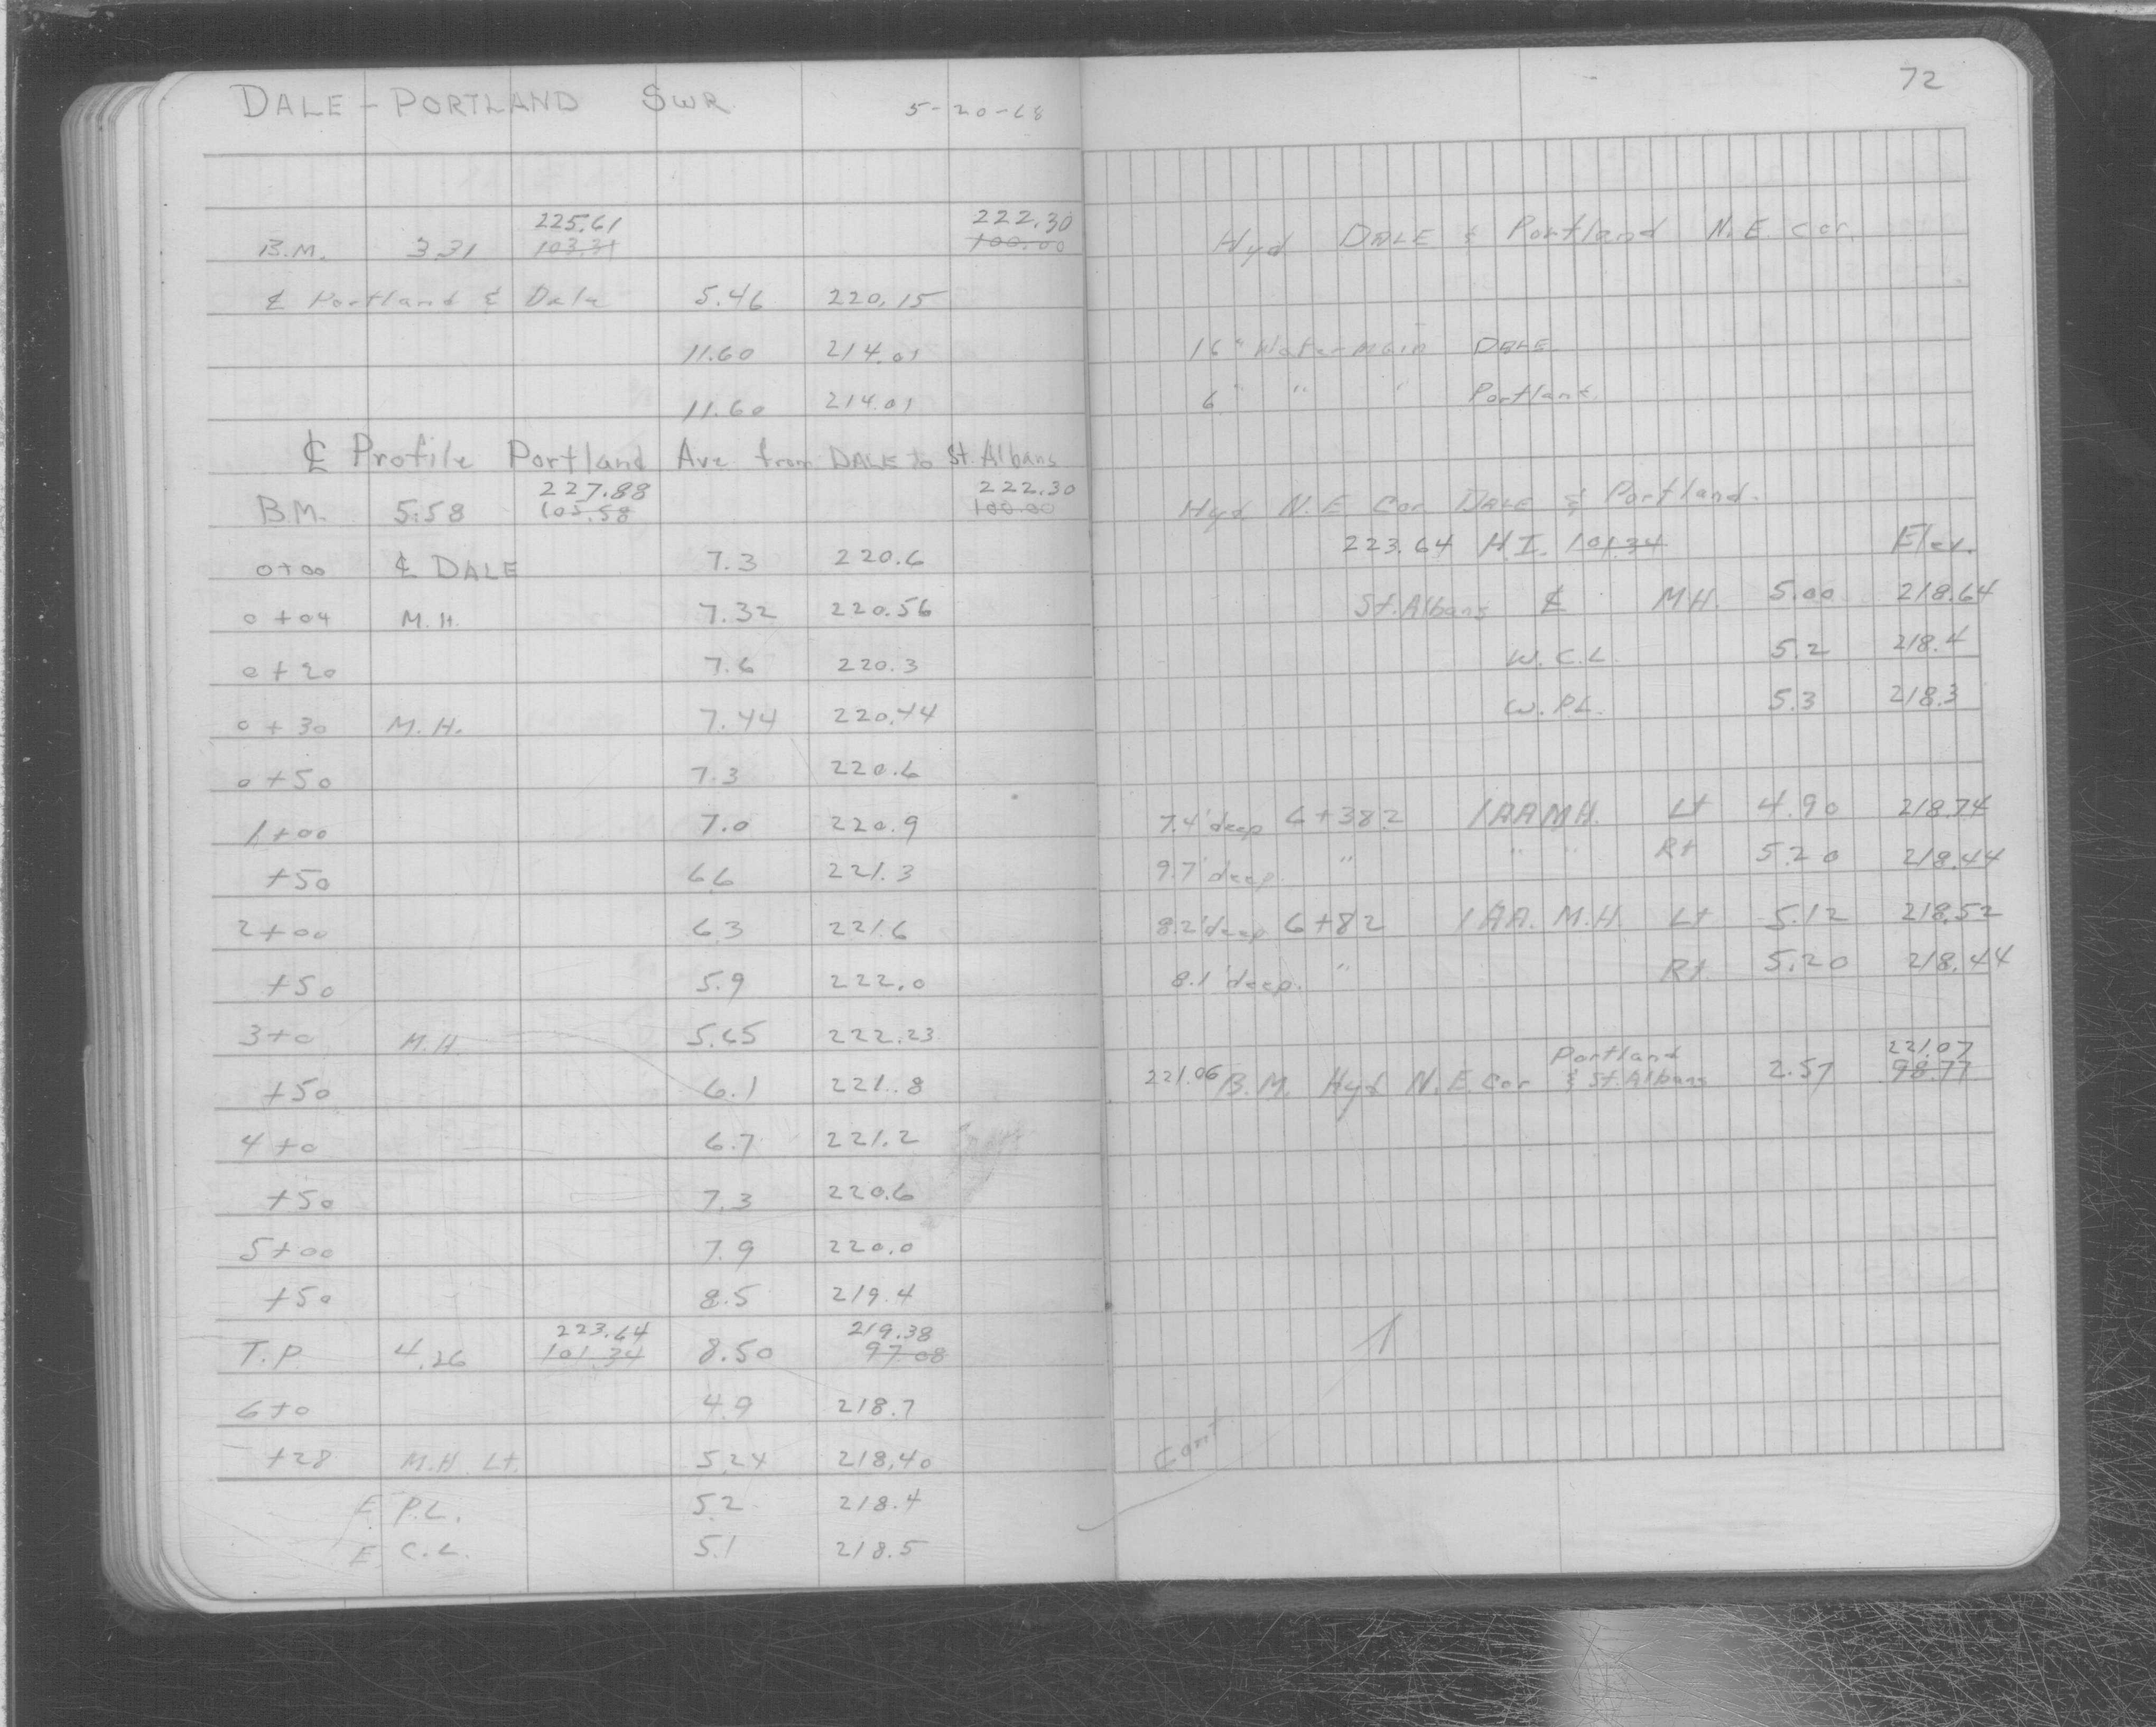 DALE - PORTLAND SWR 5-20-68
225.61 222.30
B.M. 3.31 103.31 100.00
℄ Portland & Dale 5.46 220.15
11.60 214.01
11.60 214.01
℄ Profile Portland Ave from DALE to St. Albans
227.88 222.30
B.M. 5.58 105.58 100.00
0+00 ℄ DALE 7.3 220.6
0+04 M.H. 7.32 220.56
0+20 7.6 220.3
0+30 M.H. 7.44 220.44
0+50 7.3 220.6
1+00 7.0 220.9
+50 6.6 221.3
2+00 6.3 221.6
+50 5.9 222.0
3+0 M.H. 5.65 222.23
+50 6.1 221.8
4+0 6.7 221.2
+50 7.3 220.6
5+00 7.9 220.0
+50 8.5 219.4
223.64 219.38
T.P. 4.26 101.34 8.50 97.08
6+0 4.9 218.7
+28 M.H. Lt. 5.24 218.40
E. P.L. 5.2 218.4
E. C.L. 5.1 218.5
72
Hyd DALE & Portland N.E. cor.
16" Water main DALE
6 " " " Portland
Hyd. N.E. Cor DALE & Portland.
223.64 H.I. 101.34 Elev.
St. Albans ℄ MH. 5.00 218.64
W.C.L. 5.2 218.4
W.P.L. 5.3 218.3
7.4' deep 6+382 1AA M.H. Lt 4.90 218.74
9.7' deep. " " " Rt 5.20 218.44
8.2' deep 6+82 1AA. M.H. Lt 5.12 218.52
8.1' deep. " Rt. 5.20 218.44
Portland 221.07
221.06 B.M. Hyd N.E. Cor & St. Albans 2.57 98.77
Cont